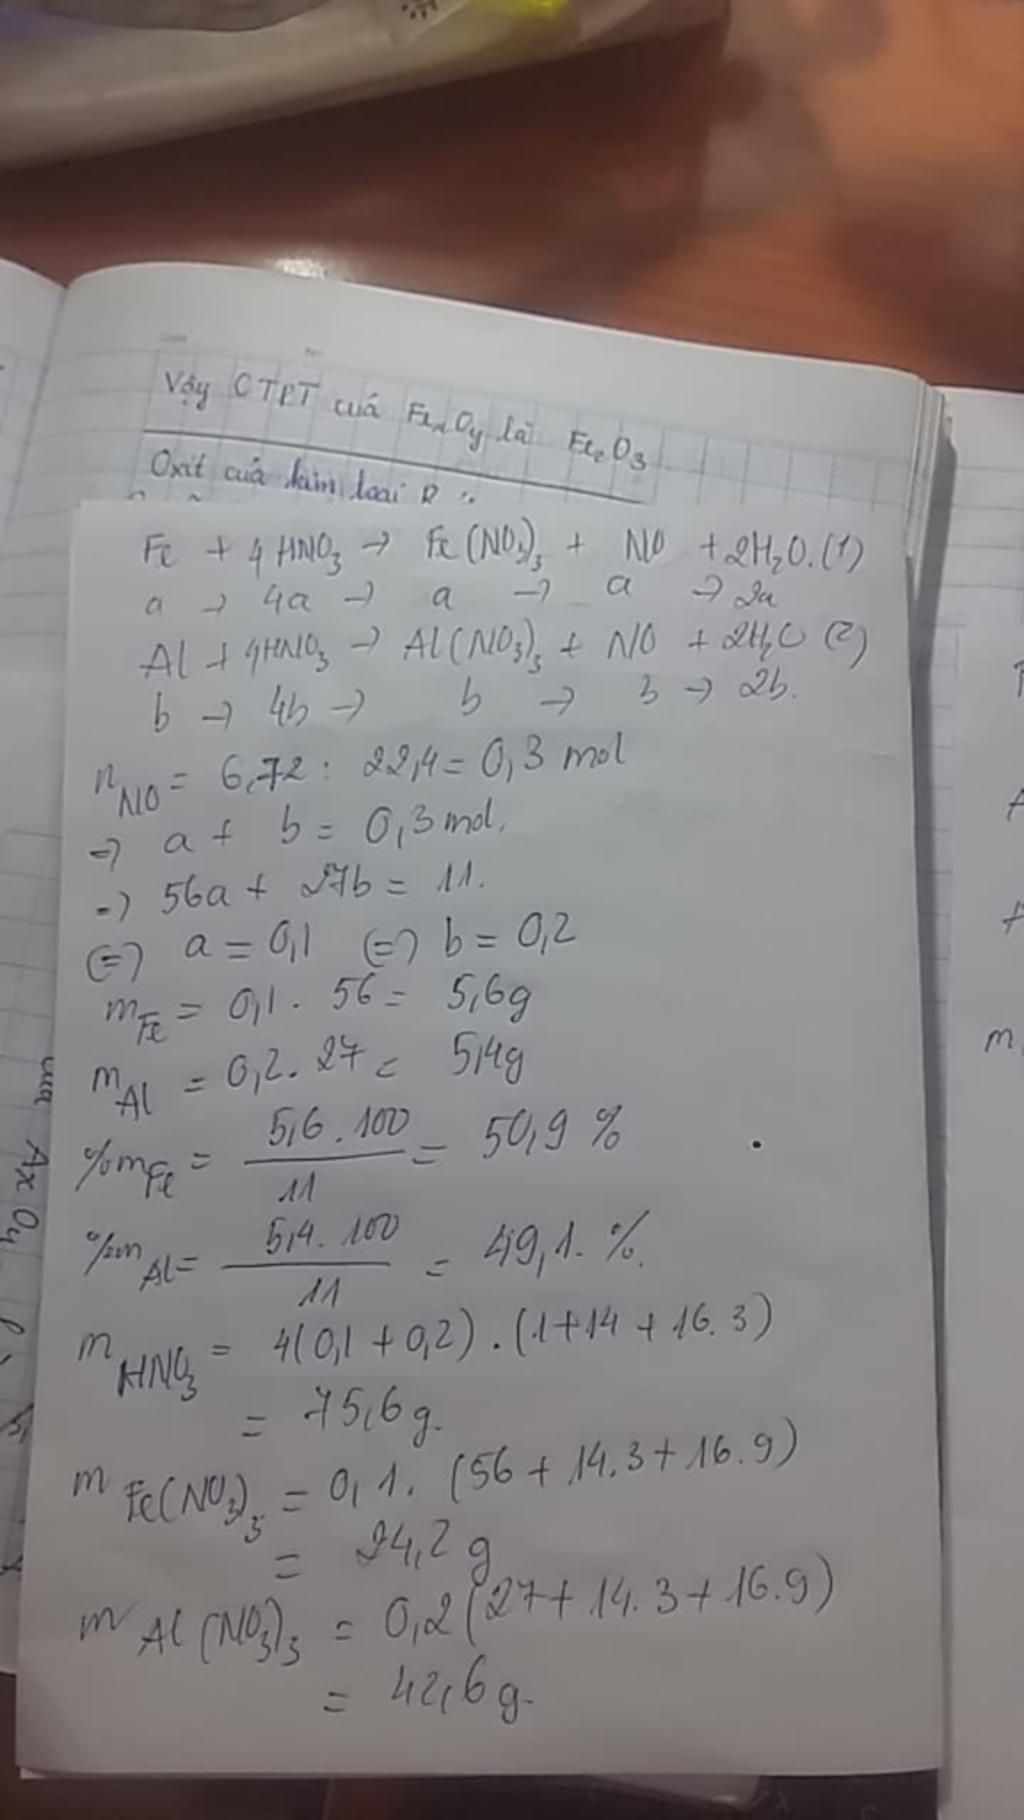 Vậy CTPT của FexOy là Fe2O3
Oxit của kim loại R
Fe + 4HNO3 → Fe(NO3)3 + NO + 2H2O. (1)
a → 4a → a → a → 2a
Al + 4HNO3 → Al(NO3)3 + NO + 2H2O (2)
b → 4b → b → b → 2b.
nNO = 6,72 : 22,4 = 0,3 mol
=> a + b = 0,3 mol.
=> 56a + 27b = 11.
(=) a = 0,1 (=) b = 0,2
mFe = 0,1 . 56 = 5,6g
mAl = 0,2 . 27 = 5,4g
%mFe = 5,6 . 100 / 11 = 50,9 %
%mAl = 5,4 . 100 / 11 = 49,1. %.
mHNO3 = 4(0,1 + 0,2) . (1+14 + 16.3)
= 75,6g.
mFe(NO3)3 = 0,1. (56 + 14.3 + 16.9)
= 24,2 g
mAl(NO3)3 = 0,2 (27 + 14.3 + 16.9)
= 42,6g.
của AxOy
m